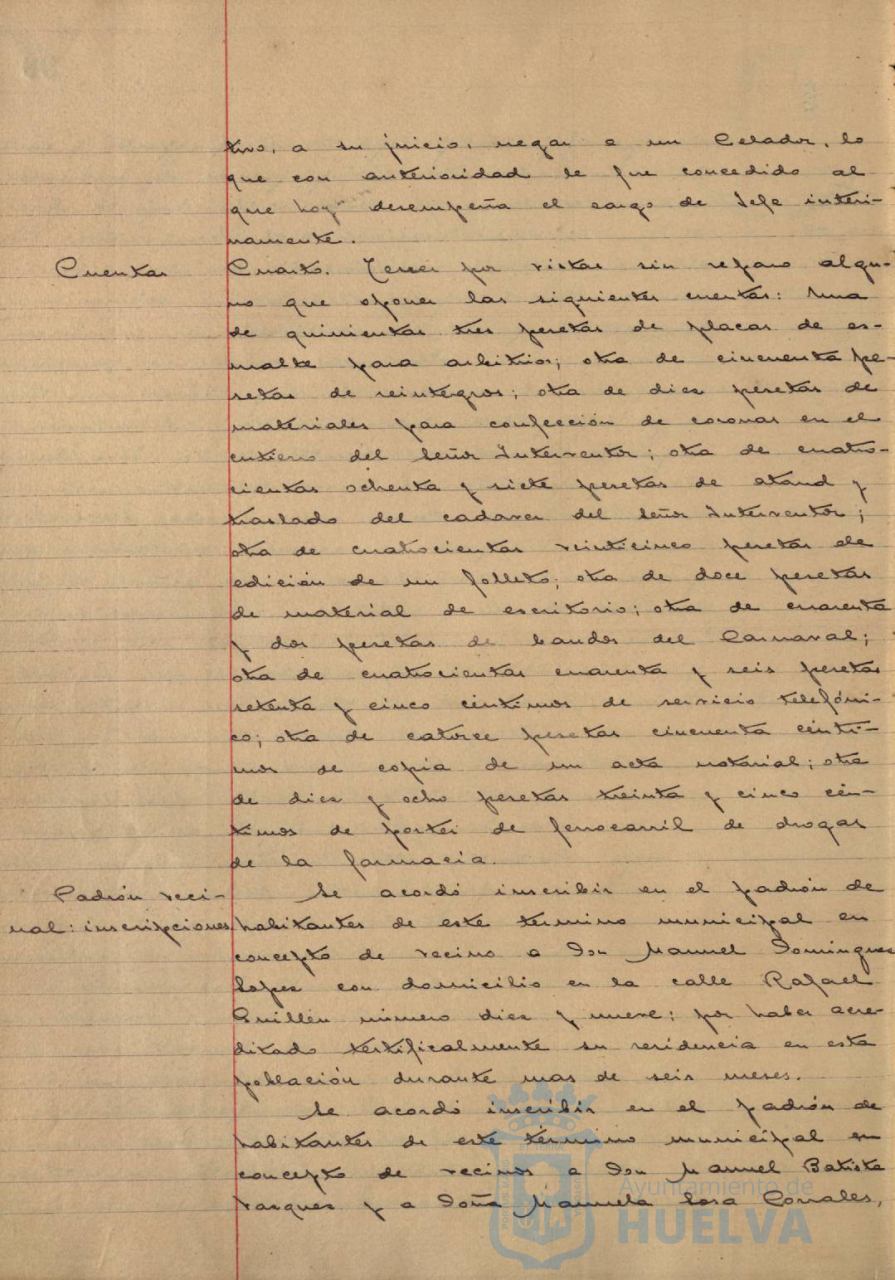 tivo, a su juicio, negar a un Celador, lo
que con anterioridad le fue concedido al
que hoy desempeña el cargo de Jefe interi-
namente.
Cuentas
Cuarto. Tener por vistas sin reparo algu-
no que oponer las siguientes cuentas: Una
de quinientas tres pesetas de placas de es-
malte para arbitrios; otra de cincuenta pe-
setas de reintegros; otra de diez pesetas de
materiales para confección de coronas en el
entierro del Señor Interventor; otra de cuatro-
cientas ochenta y siete pesetas de ataud y
traslado del cadaver del Señor Interventor;
otra de cuatrocientas veinticinco pesetas de
edición de un folleto; otra de doce pesetas
de material de escritorio; otra de cuarenta
y dos pesetas de bandos del Carnaval;
otra de cuatrocientas cuarenta y seis pesetas
setenta y cinco céntimos de servicio telefóni-
co; otra de catorce pesetas cincuenta cénti-
mos de copia de un acta notarial; otra
de diez y ocho pesetas treinta y cinco cén-
timos de portes de ferrocarril de drogas
de la farmacia.
Padrón veci-
nal: inscripciones
Se acordó inscribir en el padrón de
habitantes de este término municipal en
concepto de vecino a Don Manuel Dominguez
Lopez con domicilio en la calle Rafael
Guillén número diez y nueve; por haber acre-
ditado testificalmente su residencia en esta
población durante mas de seis meses.
Se acordó inscribir en el padrón de
habitantes de este término municipal en
concepto de vecinos a Don Manuel Batista
Vasquez y a Doña Manuela Sosa Corrales,
Ayuntamiento de
HUELVA